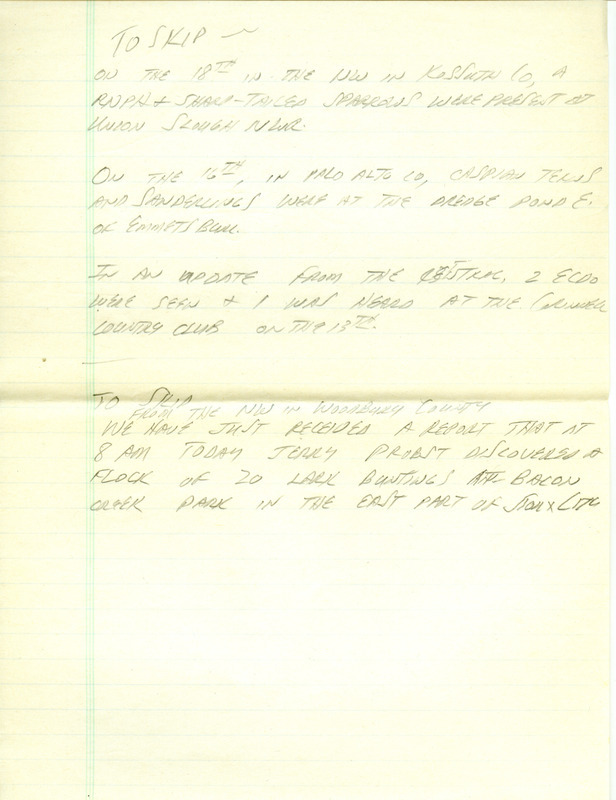 TO SKIP ~
ON THE 18TH IN THE NW IN KOSSUTH CO, A
RNPH + SHARP-TAILED SPARROWS WERE PRESENT AT
UNION SLOUGH NWR.
ON THE 16TH, IN PALO ALTO CO, CASPIAN TERNS
AND SANDERLINGS WERE AT THE DREDGE POND E.
OF EMMETSBURG.
IN AN UPDATE FROM THE CENTRAL, 2 ECDO
WERE SEEN + 1 WAS HEARD AT THE GRINNELL
COUNTRY CLUB ON THE 13TH.
TO SKIP
FROM THE NW IN WOODBURY COUNTY
WE HAVE JUST RECEIVED A REPORT THAT AT
8 AM TODAY JERRY PROBST DISCOVERED A
FLOCK OF 20 LARK BUNTINGS AT BACON
CREEK PARK IN THE EAST PART OF SIOUX CITY